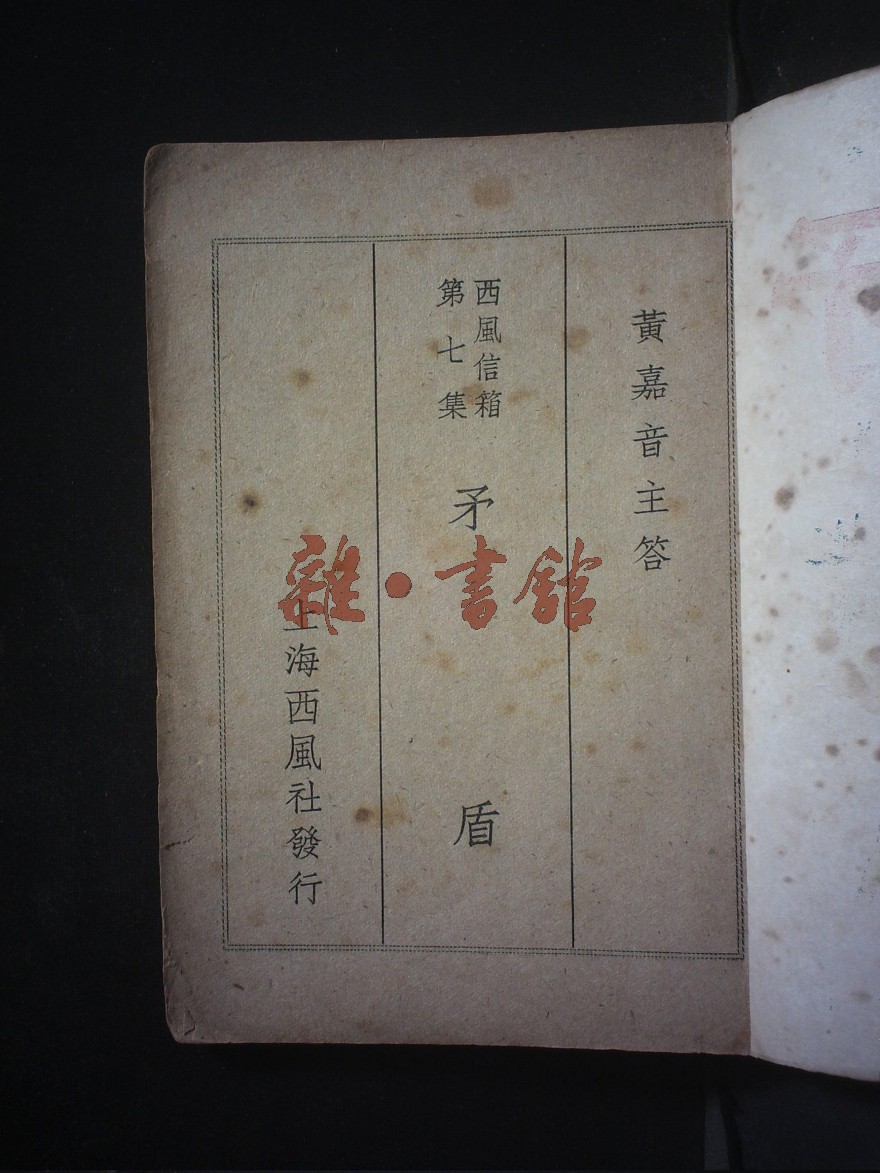 黃嘉音主答
西風信箱
第七集
矛盾
上海西風社發行
雜·書館